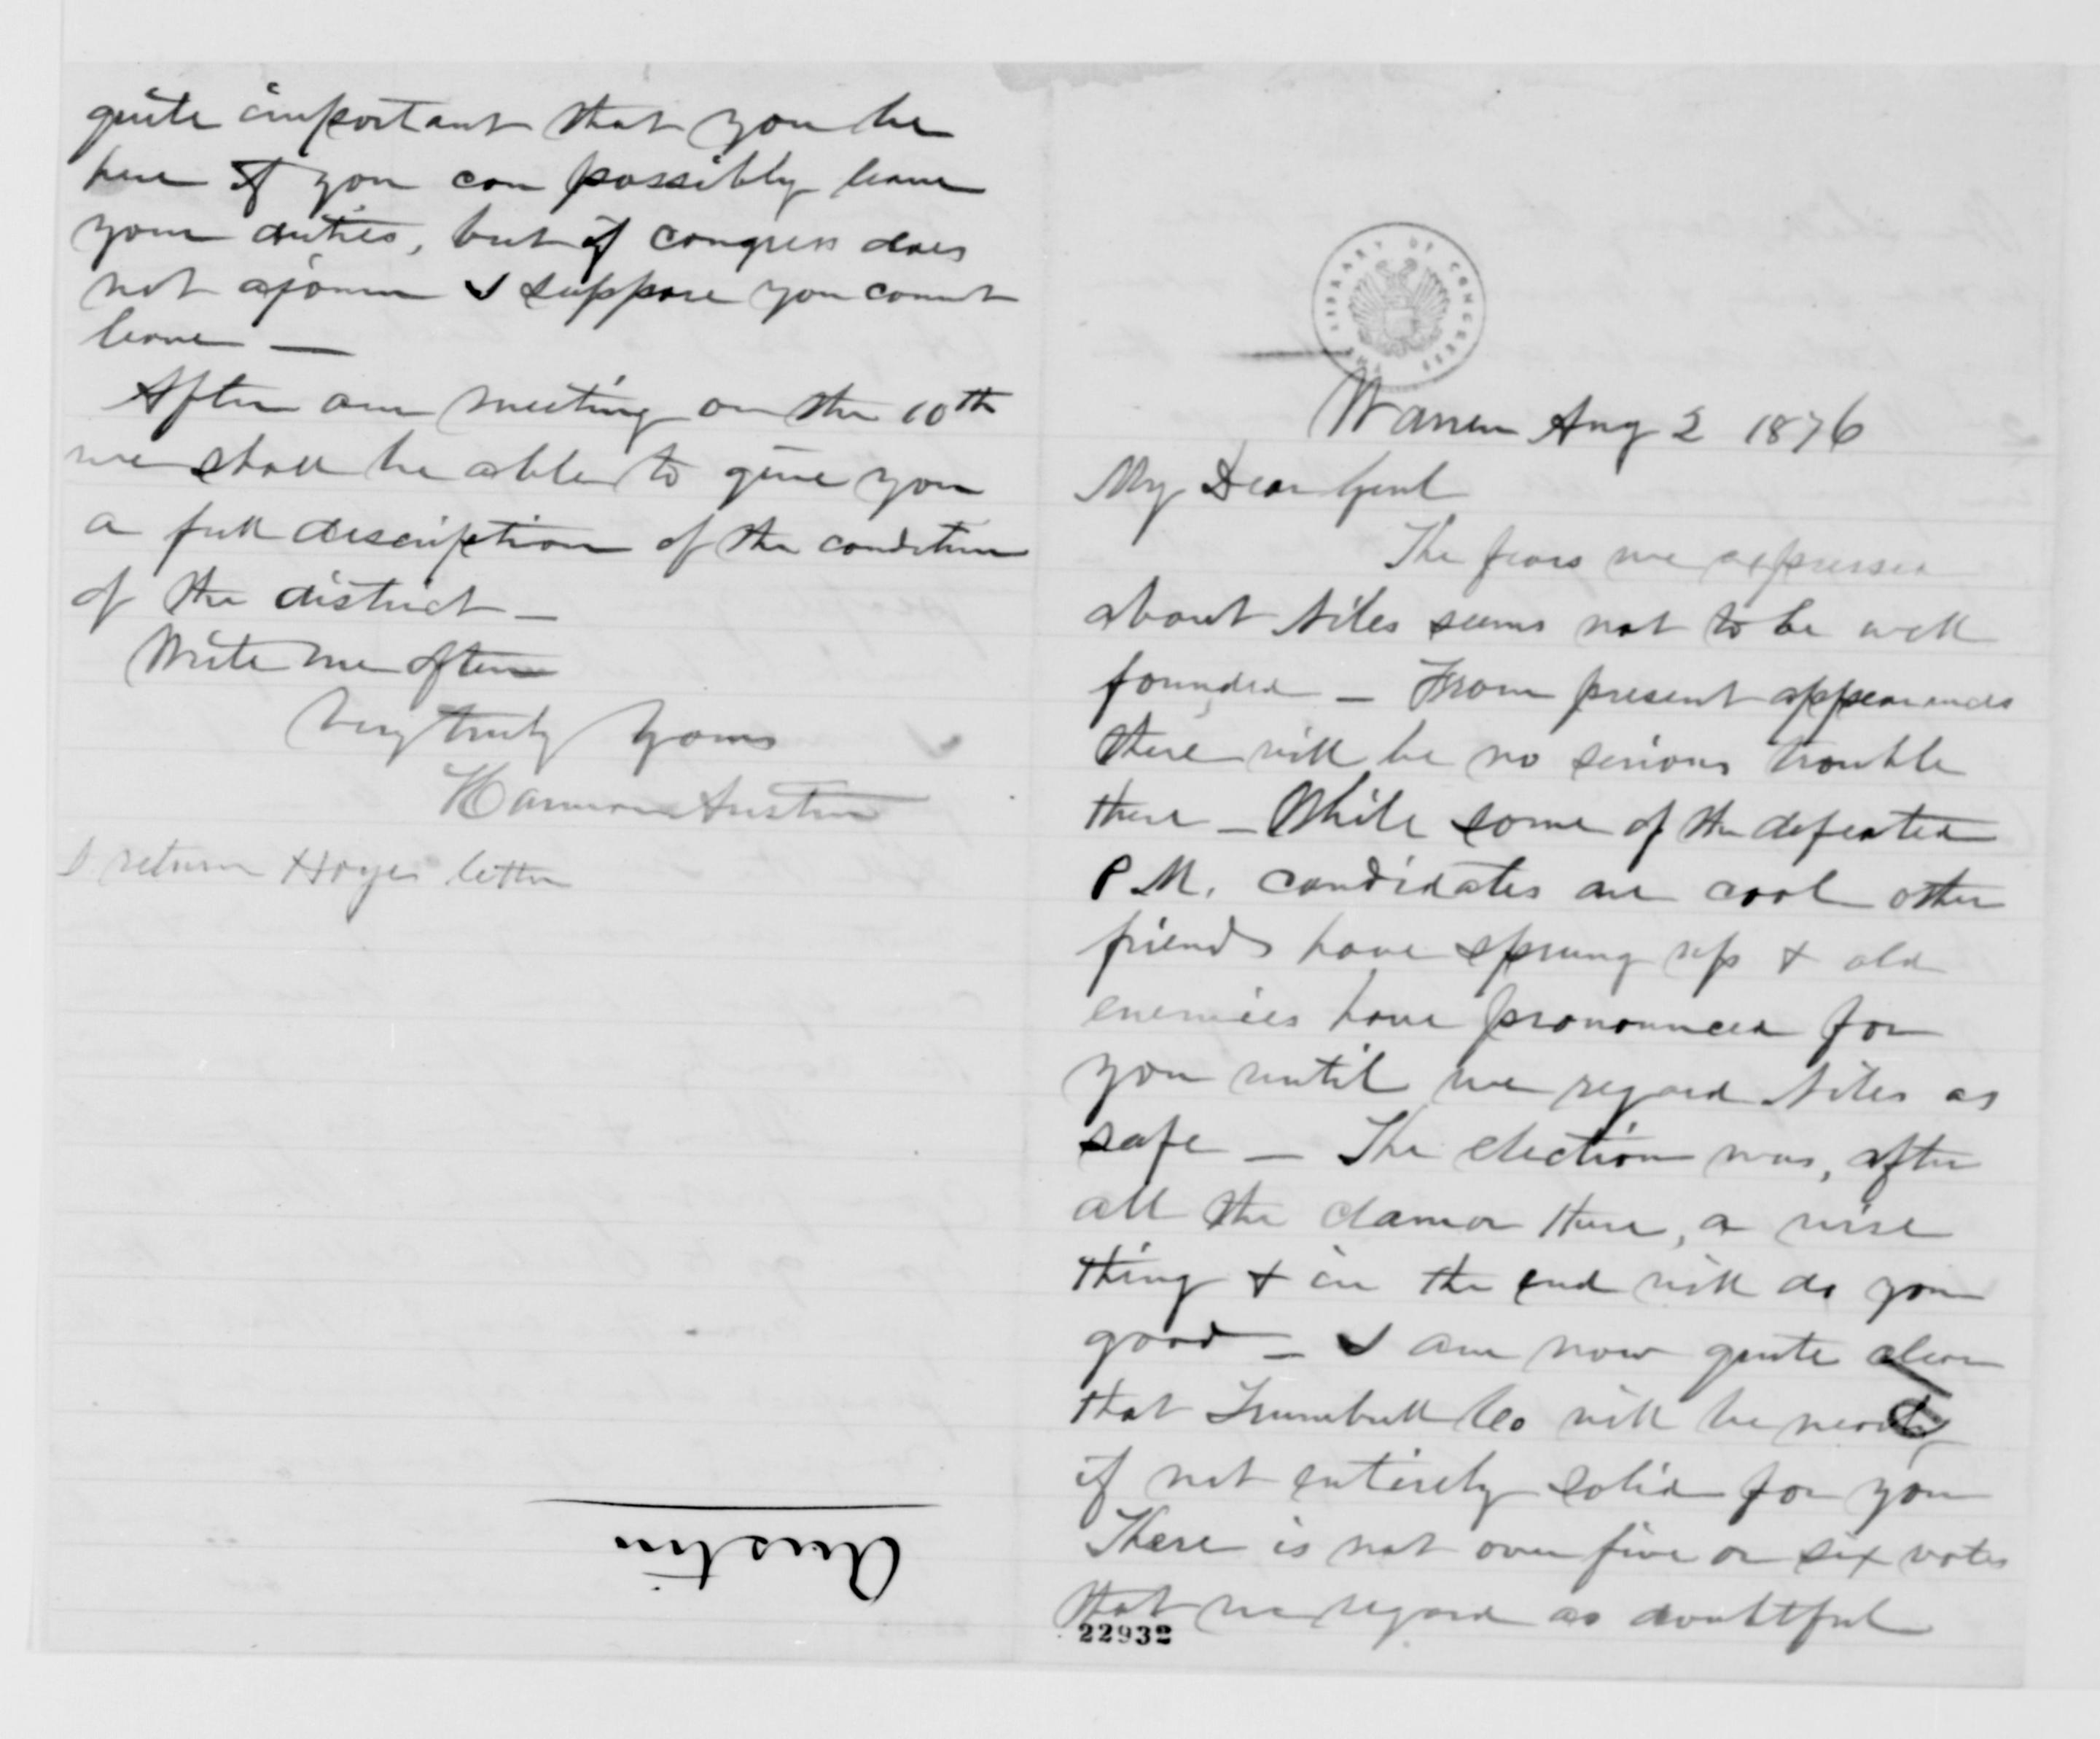 Warren Aug 2 1876
My Dear Genl
The fears we expressed
about Niles seems not to be well
founded – From present appearances
there will be no serious trouble
there – While some of the defeated
P.M. candidates are cool other
friends have sprung up & old
enemies have pronounced for
you until we regard Niles as
safe – The election was, after
all the clamor there, a wise
thing & in the end will do you
good – I am now quite clear
that Trumbull Co will be nearly
if not entirely solid for you
There is not over five or six votes
that we regard as doubtful
22932
quite important that you be
here if you can possibly leave
your duties, but if congress does
not ajourn I suppose you cannot
leave –
After our meeting on the 10th
we shall be able to give you
a full description of the condition
of the district –
Write me often
Very truly Yours
Harmon Austin
I return Hayes letter
Austin
LIBRARY OF CONGRESS